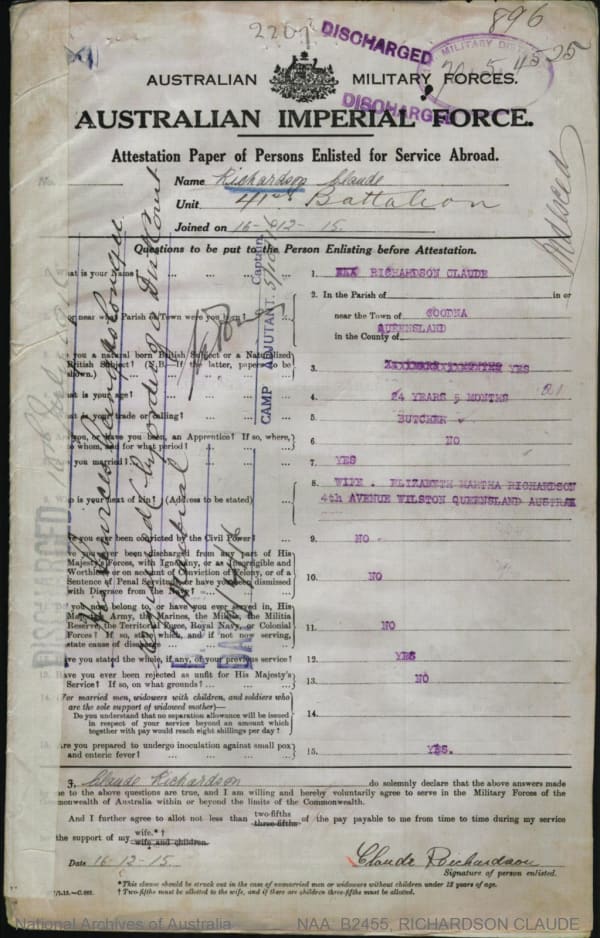 896
2207
DISCHARGED
MILITARY
DISCHARGED
AUSTRALIAN MILITARY FORCES.
AUSTRALIAN IMPERIAL FORCE.
Attestation Paper of Persons Enlisted for Service Abroad.
No.
Name Richardson Claude
Unit 41st Battalion
Joined on 16-12-15.
Questions to be put to the Person Enlisting before Attestation.
hat is your Name? 1. RICHARDSON CLAUDE
2. In the Parish of in or
or near what Parish or Town were you born? near the Town of GOODNA
in the County of QUEENSLAND
you a natural born British Subject or a Naturalized
British Subject? N.B.—If the latter, papers to be
shown.) 3. YES
hat is your age? 4. 24 YEARS 5 MONTHS
hat is your trade or calling? 5. BUTCHER
you, or have you been, an Apprentice? If so, where,
to whom, and for what period? 6. NO
you married? 7. YES
ho is your next of kin? (Address to be stated) 8. WIFE. ELIZABETH MARTHA RICHARDSON
4th AVENUE WILSTON QUEENSLAND AUSTRAL
ve you ever been convicted by the Civil Power? 9. NO
ve you ever been discharged from any part of His
Majesty's Forces, with Ignominy, or as Incorrigible and
Worthless, or on account of Conviction of Felony, or of a
Sentence of Penal Servitude, or have you been dismissed
with Disgrace from the Navy? 10. NO
you now belong to, or have you ever served in, His
Majesty's Army, the Marines, the Militia, the Militia
Reserve, the Territorial Force, Royal Navy, or Colonial
Forces? If so, state which, and if not now serving,
state cause of discharge 11. NO
ve you stated the whole, if any, of your previous service? 12. YES
ave you ever been rejected as unfit for His Majesty's
Service? If so, on what grounds? 13. NO
(For married men, widowers with children, and soldiers who
are the sole support of widowed mother)—
Do you understand that no separation allowance will be issued
in respect of your service beyond an amount which
together with pay would reach eight shillings per day? 14.
Are you prepared to undergo inoculation against small pox
and enteric fever? 15. YES.
CAMP ADJUTANT.
Captain
DISCHARGED
I, Claude Richardson do solemnly declare that the above answers made
me to the above questions are true, and I am willing and hereby voluntarily agree to serve in the Military Forces of the
monwealth of Australia within or beyond the limits of the Commonwealth.
And I further agree to allot not less than two-fifths three-fifths of the pay payable to me from time to time during my service
the support of my wife.*† wife and children.
Date 16-12-15. Claude Richardson
Signature of person enlisted.
*This clause should be struck out in the case of unmarried men or widowers without children under 18 years of age.
† Two-fifths must be allotted to the wife, and if there are children three-fifths must be allotted.
National Archives of Australia NAA: B2455, RICHARDSON CLAUDE